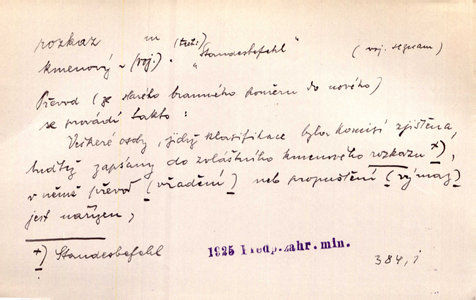 rozkaz m
kmenový - (voj.) - "Standesbefehl" (voj. seznam)
Převod (ze starého branného poměru do nového)
se provádí takto:
Veškeré osoby, jichž klasifikace byla komisí zjištěna,
buďtež zapsány do zvláštního kmenového rozkazu *),
v němž převod (vřadění) neb propuštění (výmaz)
jest nařízen,
*) Standesbefehl
1925 Předp.zahr.min.
384, i